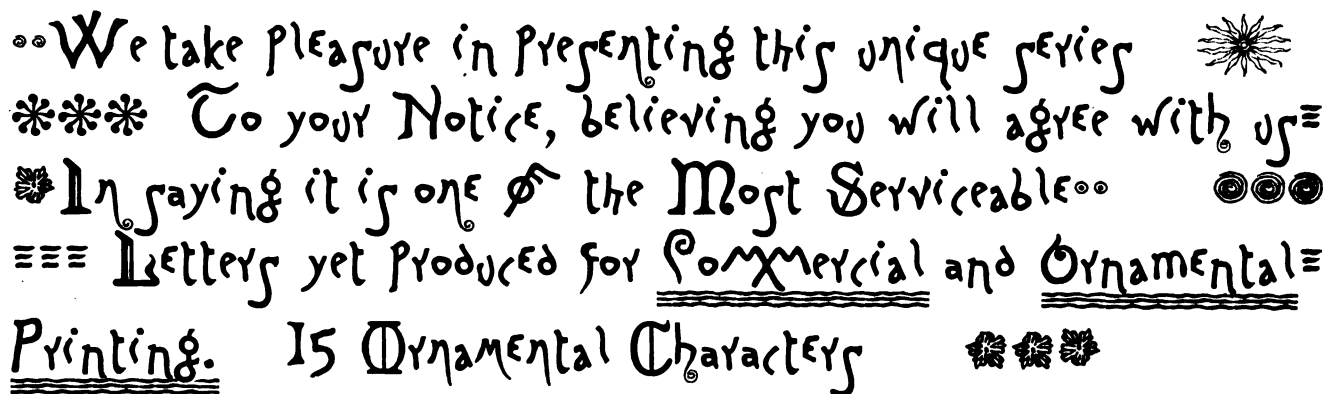 We take pleasure in presenting this unique series
To your Notice, believing you will agree with us
In saying it is one of the Most Serviceable
Letters yet produced for Commercial and Ornamental
Printing. 15 Ornamental Characters